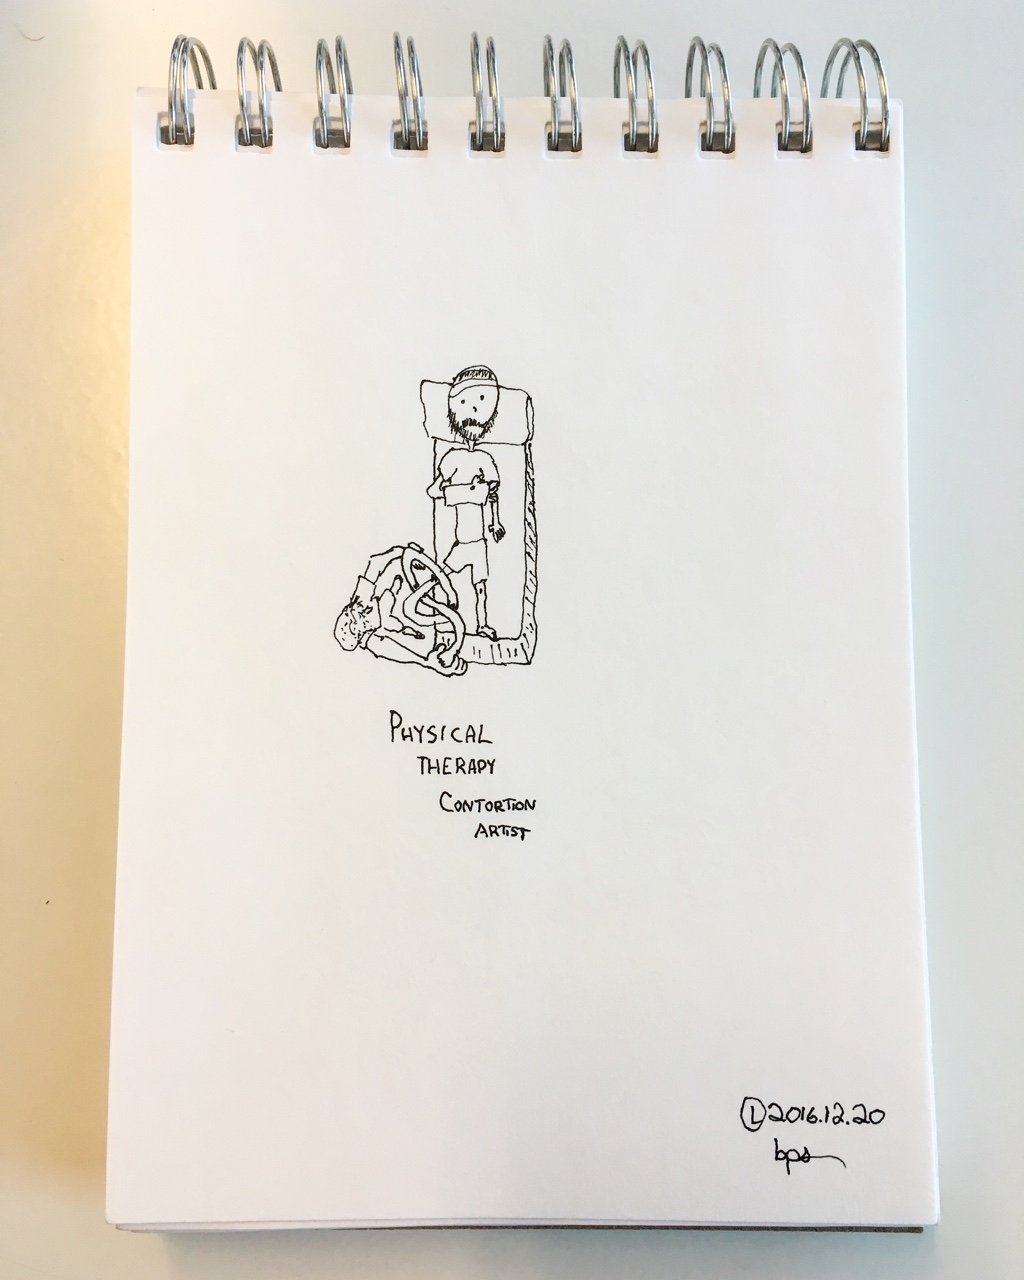 PHYSICAL
THERAPY
CONTORTION
ARTIST
Ⓛ2016.12.20
bps